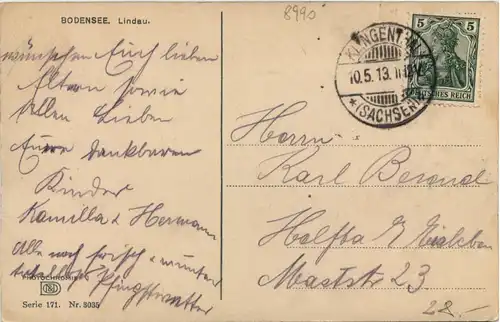 BODENSEE. Lindau.
8990
wünschen Euch lieben
Eltern sowie
Allen Lieben
Eure dankbaren
Kinder
Kamilla & Hermann
Alle noch frisch & munter
Pfingstwetter
PHOTOCHROMIE
Serie 171. Nr. 3035
KLINGENTHAL
10.5.13.
* (SACHSEN)
5 5
DEUTSCHES REICH
Herrn
Karl Berend
Helfta b/ Eisleben
Maststr 23
28.-